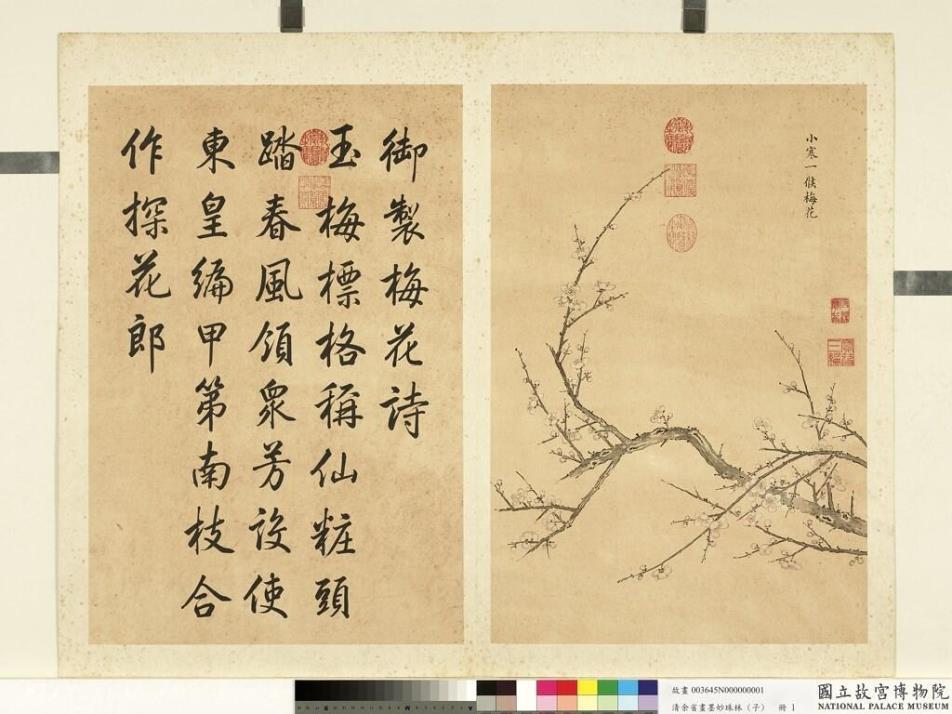 小寒一候梅花
御製梅花詩
玉梅標格稱仙粧頭
踏春風領衆芳設使
東皇編甲第南枝合
作探花郎
故畫 003645N000000001
清余省畫墨妙珠林(子) 冊 1
國立故宮博物院
NATIONAL PALACE MUSEUM